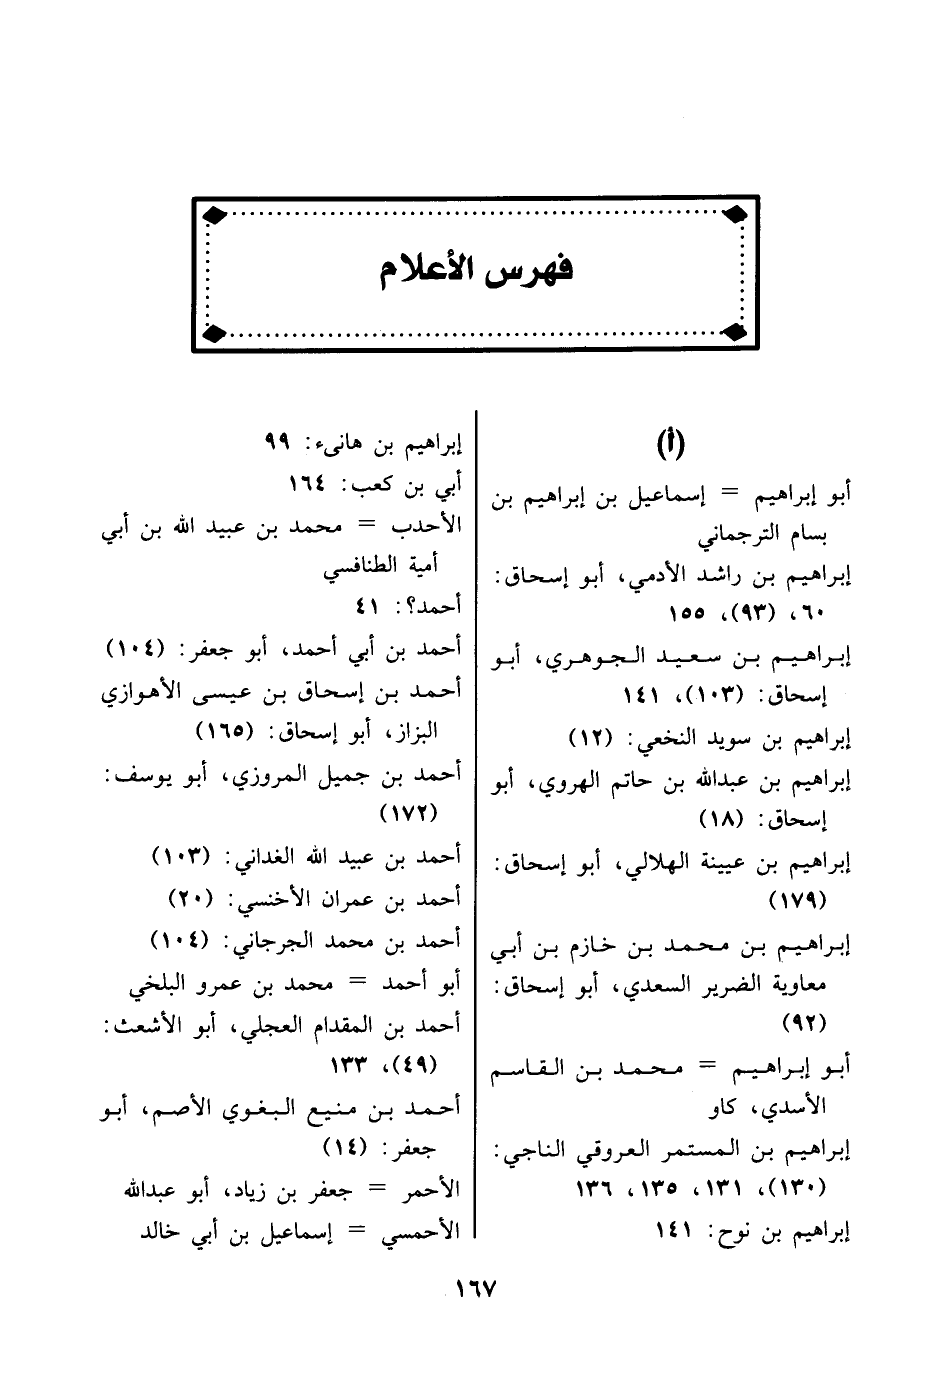 فهرس الأعلام
(أ)
أبو إبراهيم = إسماعيل بن إبراهيم بن
بسام الترجماني
إبراهيم بن راشد الأدمي، أبو إسحاق:
٦٠، (٩٣)، ١٥٥
إبراهيم بن سعيد الجوهري، أبو
إسحاق: (١٠٣)، ١٤١
إبراهيم بن سويد النخعي: (١٢)
إبراهيم بن عبدالله بن حاتم الهروي، أبو
إسحاق: (١٨)
إبراهيم بن عيينة الهلالي، أبو إسحاق:
(١٧٩)
إبراهيم بن محمد بن خازم بن أبي
معاوية الضرير السعدي، أبو إسحاق:
(٩٢)
أبو إبراهيم = محمد بن القاسم
الأسدي، كاو
إبراهيم بن المستمر العروقي الناجي:
(١٣٠)، ١٣١، ١٣٥، ١٣٦
إبراهيم بن نوح: ١٤١
إبراهيم بن هانىء: ٩٩
أبي بن كعب: ١٦٤
الأحدب = محمد بن عبيد الله بن أبي
أمية الطنافسي
أحمد؟: ٤١
أحمد بن أبي أحمد، أبو جعفر: (١٠٤)
أحمد بن إسحاق بن عيسى الأهوازي
البزاز، أبو إسحاق: (١٦٥)
أحمد بن جميل المروزي، أبو يوسف:
(١٧٢)
أحمد بن عبيد الله الغداني: (١٠٣)
أحمد بن عمران الأخنسي: (٢٠)
أحمد بن محمد الجرجاني: (١٠٤)
أبو أحمد = محمد بن عمرو البلخي
أحمد بن المقدام العجلي، أبو الأشعث:
(٤٩)، ١٣٣
أحمد بن منيع البغوي الأصم، أبو
جعفر: (١٤)
الأحمر = جعفر بن زياد، أبو عبدالله
الأحمسي = إسماعيل بن أبي خالد
١٦٧